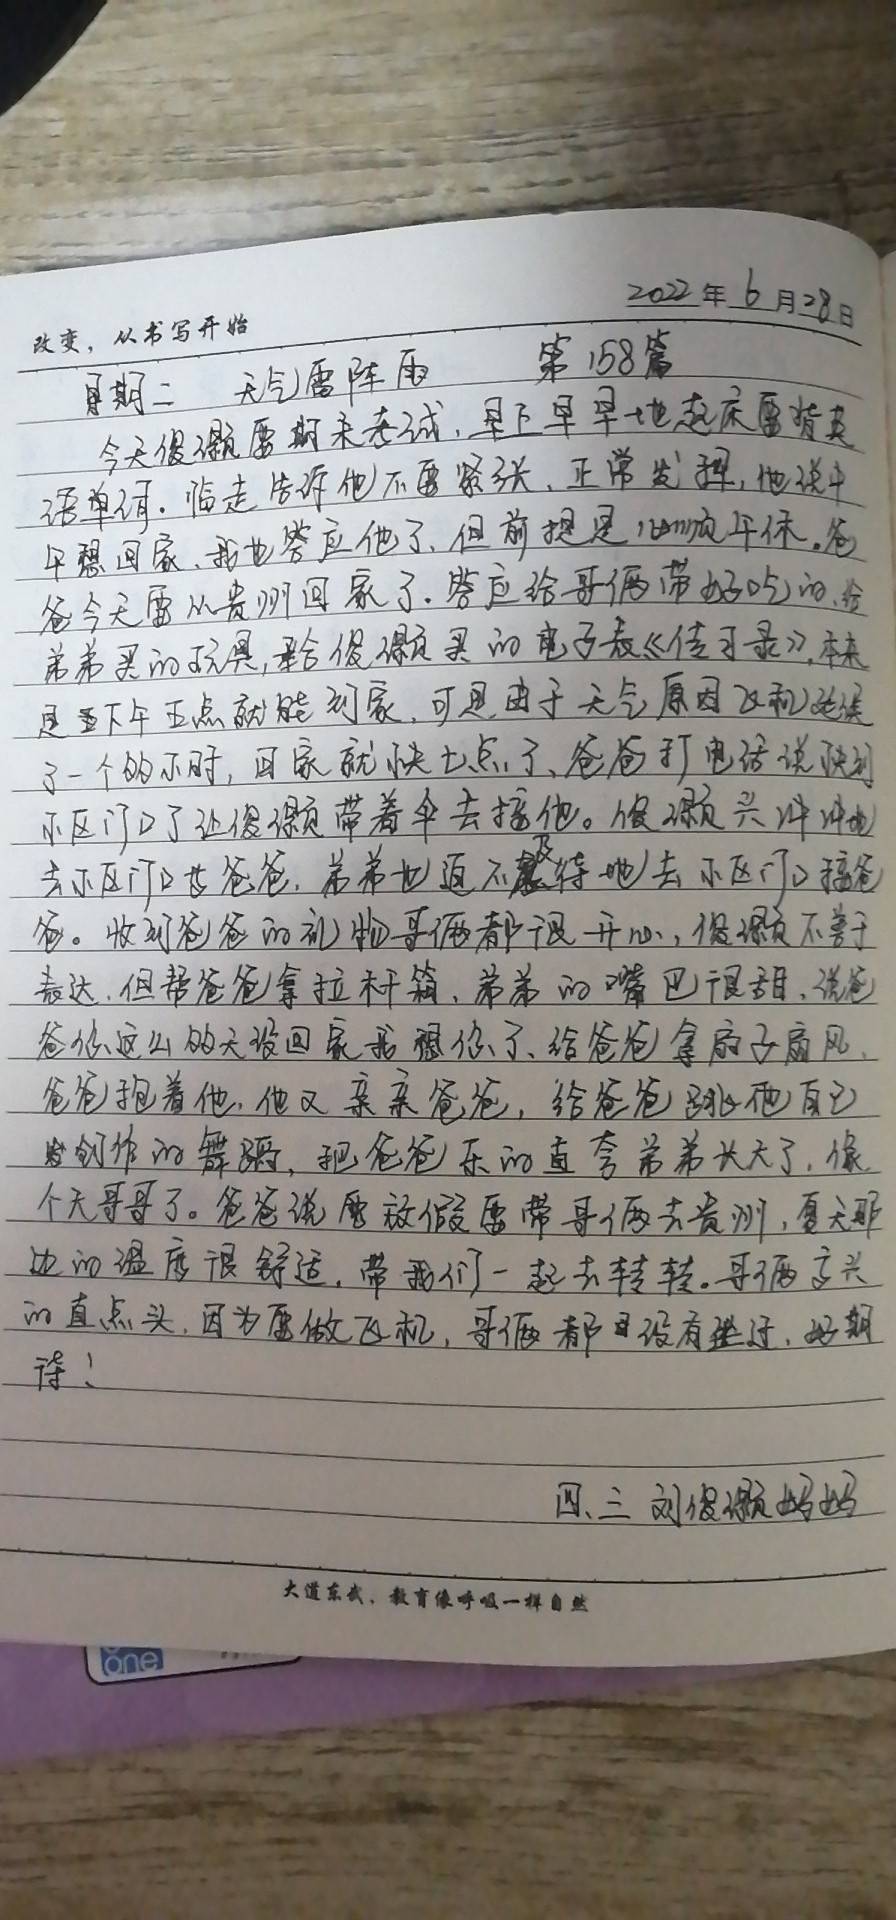 2022年6月28日
改变，从书写开始
星期二 天气雷阵雨 第158篇
今天俊灏要期末考试，早下早早地起床要背英
语单词。临走告诉他不要紧张、正常发挥，他说中
午想回家、我也答应他了、但前提是 午休。爸
爸今天要从贵州回家了。答应给哥俩带好吃的、给
弟弟买的玩具，给俊灏买的电子表《 》，本来
是下午五点就能到家，可是由于天气原因飞机延误
了一个的小时，回家就快七点了、爸爸打电话说快到
小区门口了让俊灏带着伞去接他。俊灏兴冲冲地
去小区门口 爸爸，弟弟也迫不及待地去小区门口接爸
爸。收到爸爸的礼物哥俩都很开心，俊灏不善于
表达，但帮爸爸拿拉杆箱、弟弟的嘴巴很甜、说爸
爸你这么的天没回家我想你了、给爸爸拿扇子扇风，
爸爸抱着他，他又亲亲爸爸，给爸爸跳他自己
创作的舞蹈，把爸爸乐的直夸弟弟长大了，像
个大哥哥了。爸爸说要放假要带哥俩去贵州，夏天那
边的温度很舒适，带我们一起去转转。哥俩高兴
的直点头，因为要做飞机，哥俩都没有坐过，好期
待！
四、三 刘俊灏妈妈
大道东武，教育像呼吸一样自然
one